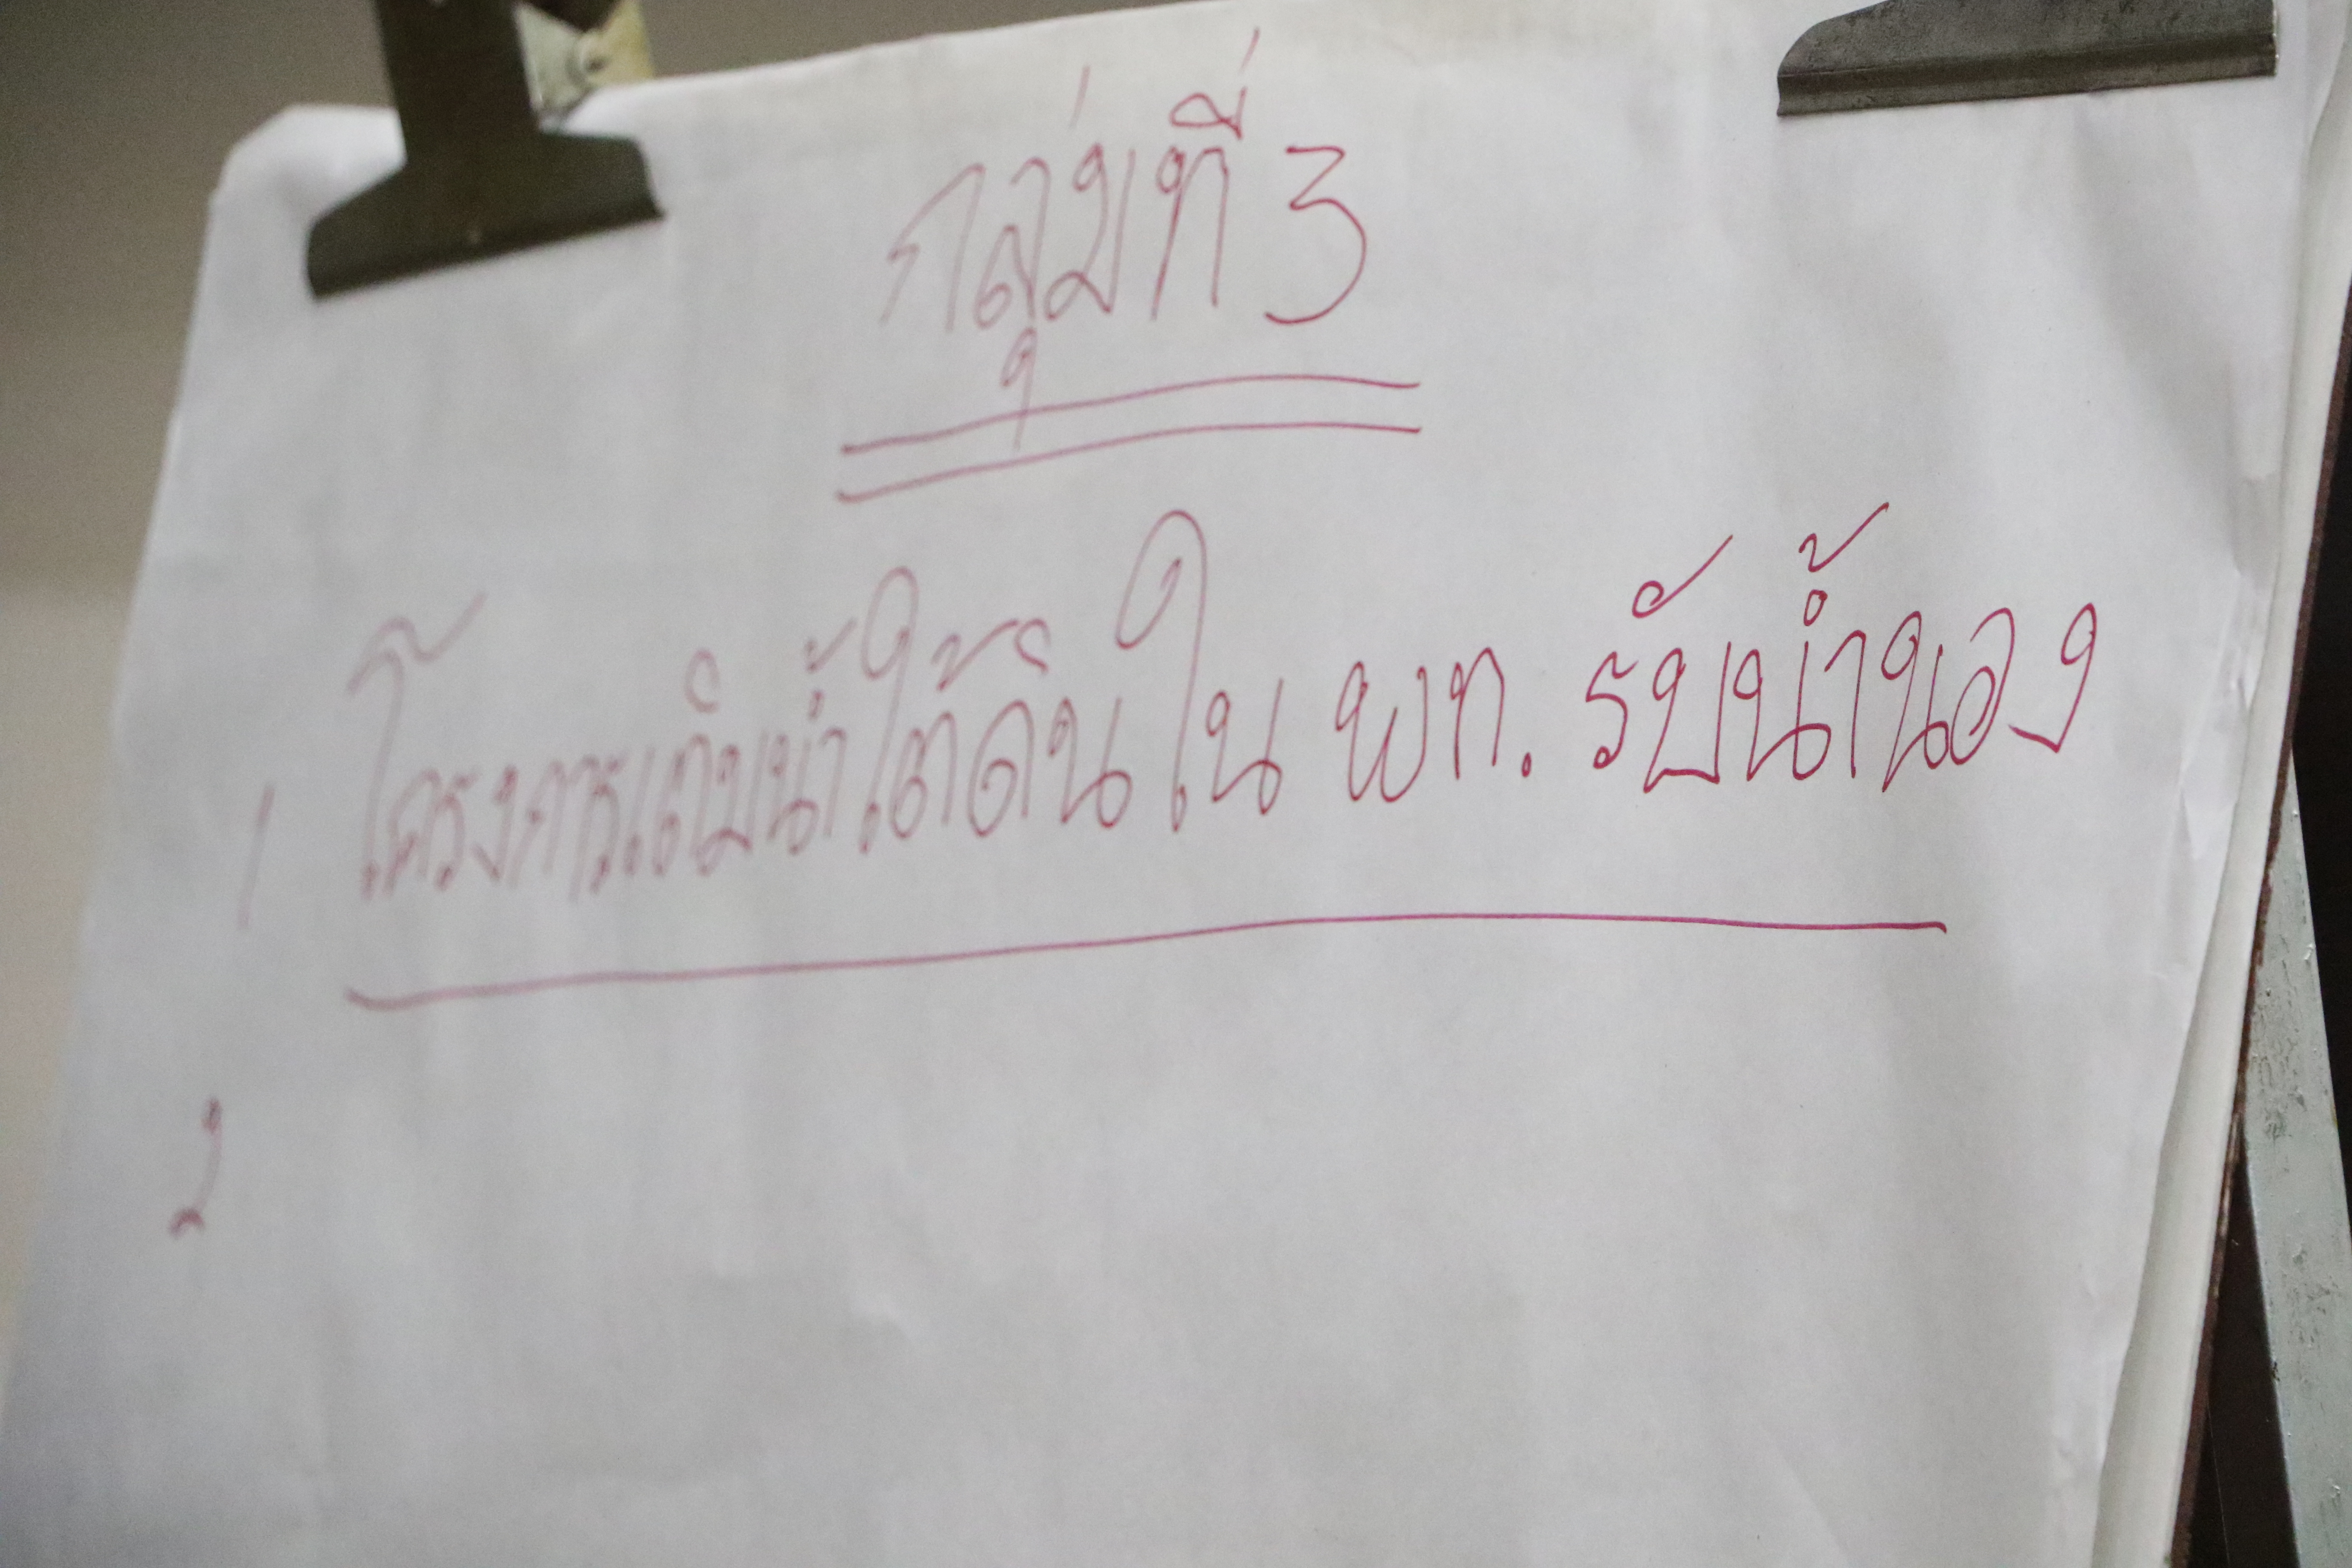 กลุ่มที่ 3
1 โครงการเติมน้ำใต้ดินใน พท. รับน้ำนอง
2